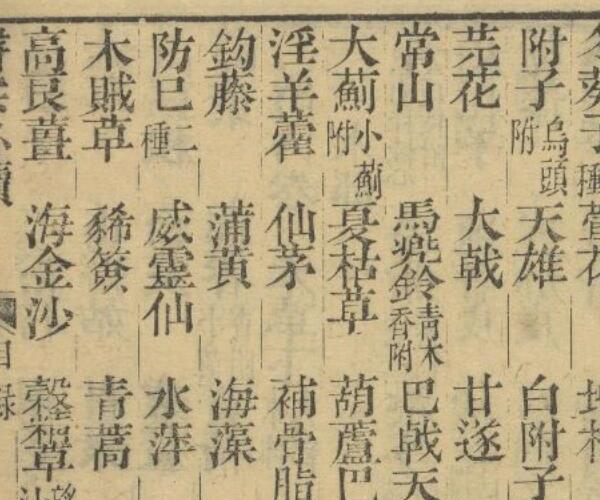 冬葵子種 萱花 地榆
附子烏頭附 天雄 白附子
芫花 大戟 甘遂
常山 馬兜鈴青木香附 巴戟天
大薊小薊附 夏枯草 葫蘆巴
淫羊藿 仙茅 補骨脂
鈎藤 蒲黃 海藻
防巳二種 威靈仙 水萍
木賊草 豨簽 青蒿
高良薑 海金沙 穀精草
目錄